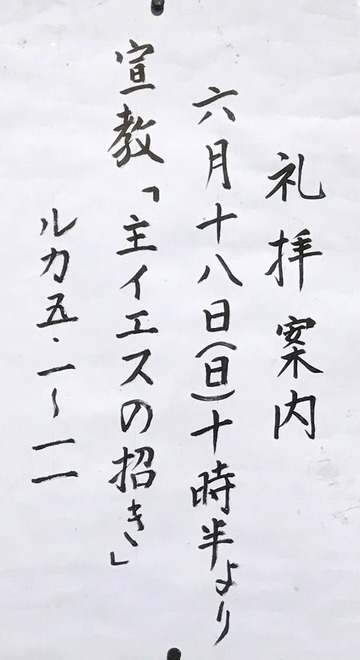 礼拝案内
六月十八日(日)十時半より
宣教「主イエスの招き」
ルカ五・一〜一一